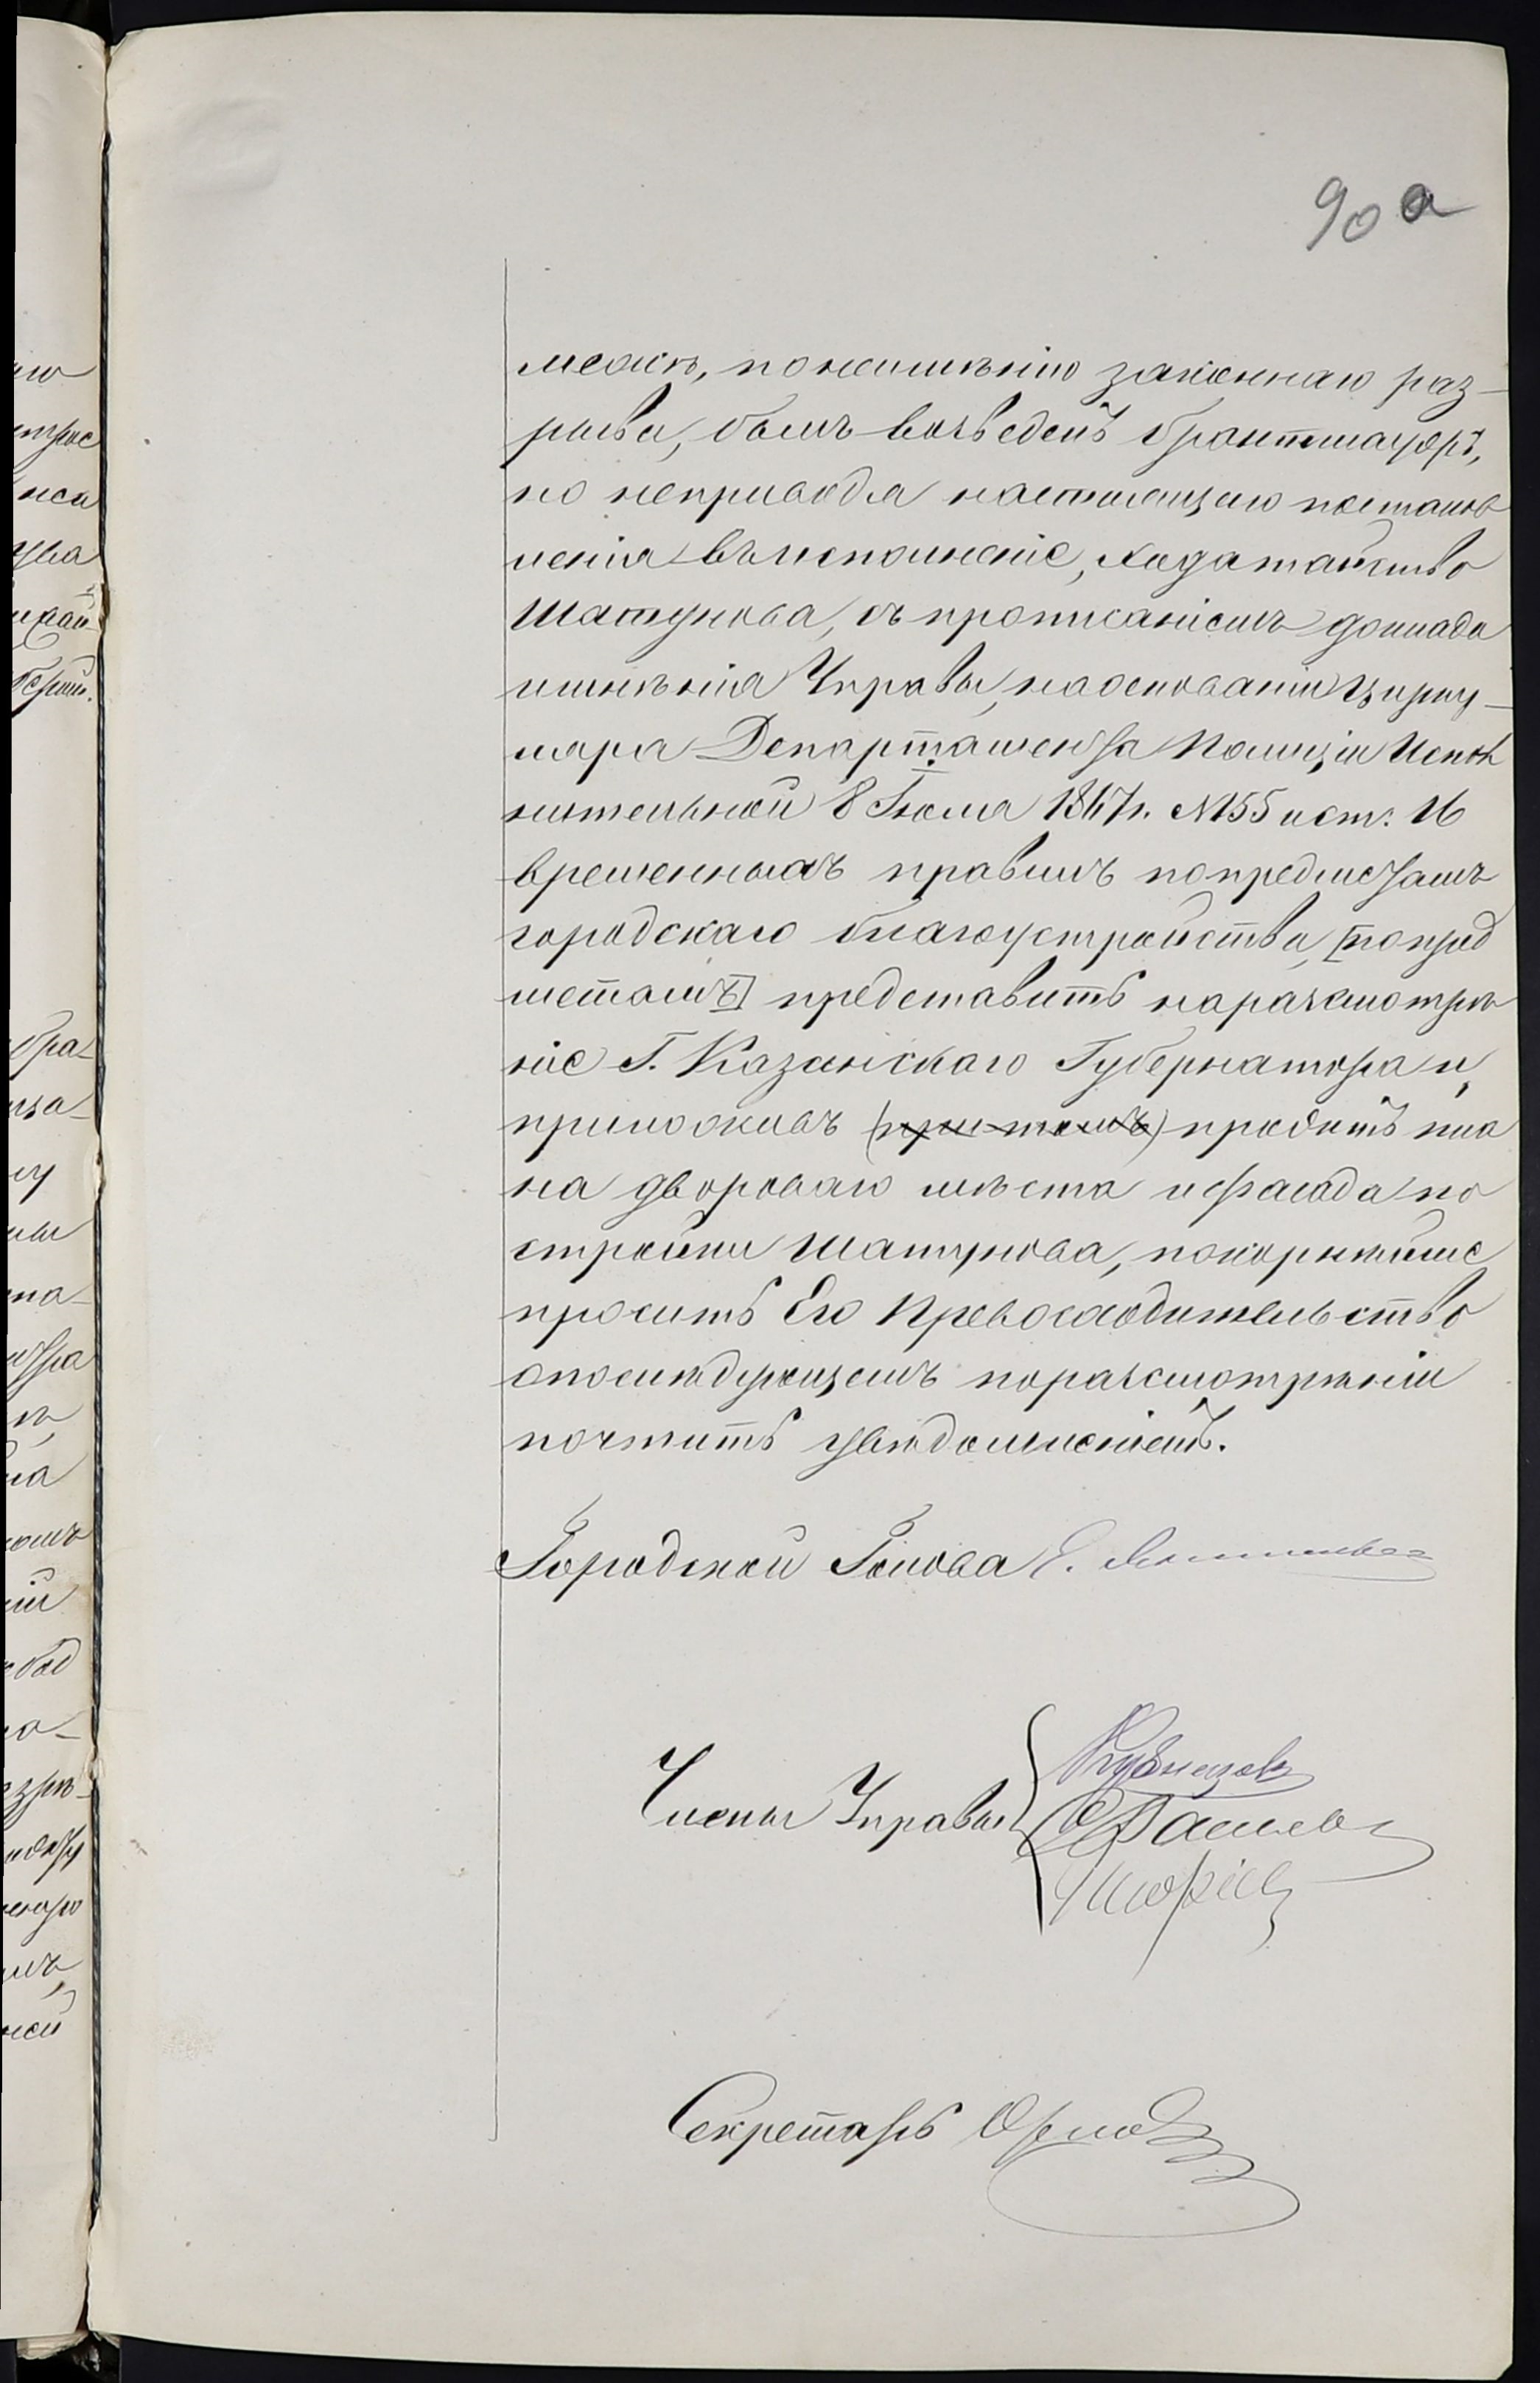 90 а
межѣ, по неимѣнію законнаго раз-
рыва, былъ возведенъ брантмауеръ,
но неприводя настоящаго постанов
ленія въ исполненіе, ходатайство
Шатунова, съ прописаніемъ доклада
и мнѣнія Управы, на основаніи цирку-
ляра Департамента Полиціи Испол
нительной 8 Іюля 1867 г. № 155 и ст. 16
временныхъ правилъ по предметамъ
городскаго благоустройства, [по пред
метамъ] представить на разсмотрѣ
ніе Г. Казанскаго Губернатора и,
приложивъ (при томъ) проэктъ пла
на двороваго мѣста и фасада по
стройки Шатунова, покорнѣйше
просить Его Превосходительство
о послѣдующемъ по разсмотрѣніи
почтить увѣдомленіемъ.
Городской Голова
Члены Управы
Кузнецовъ
Секретарь Орловъ